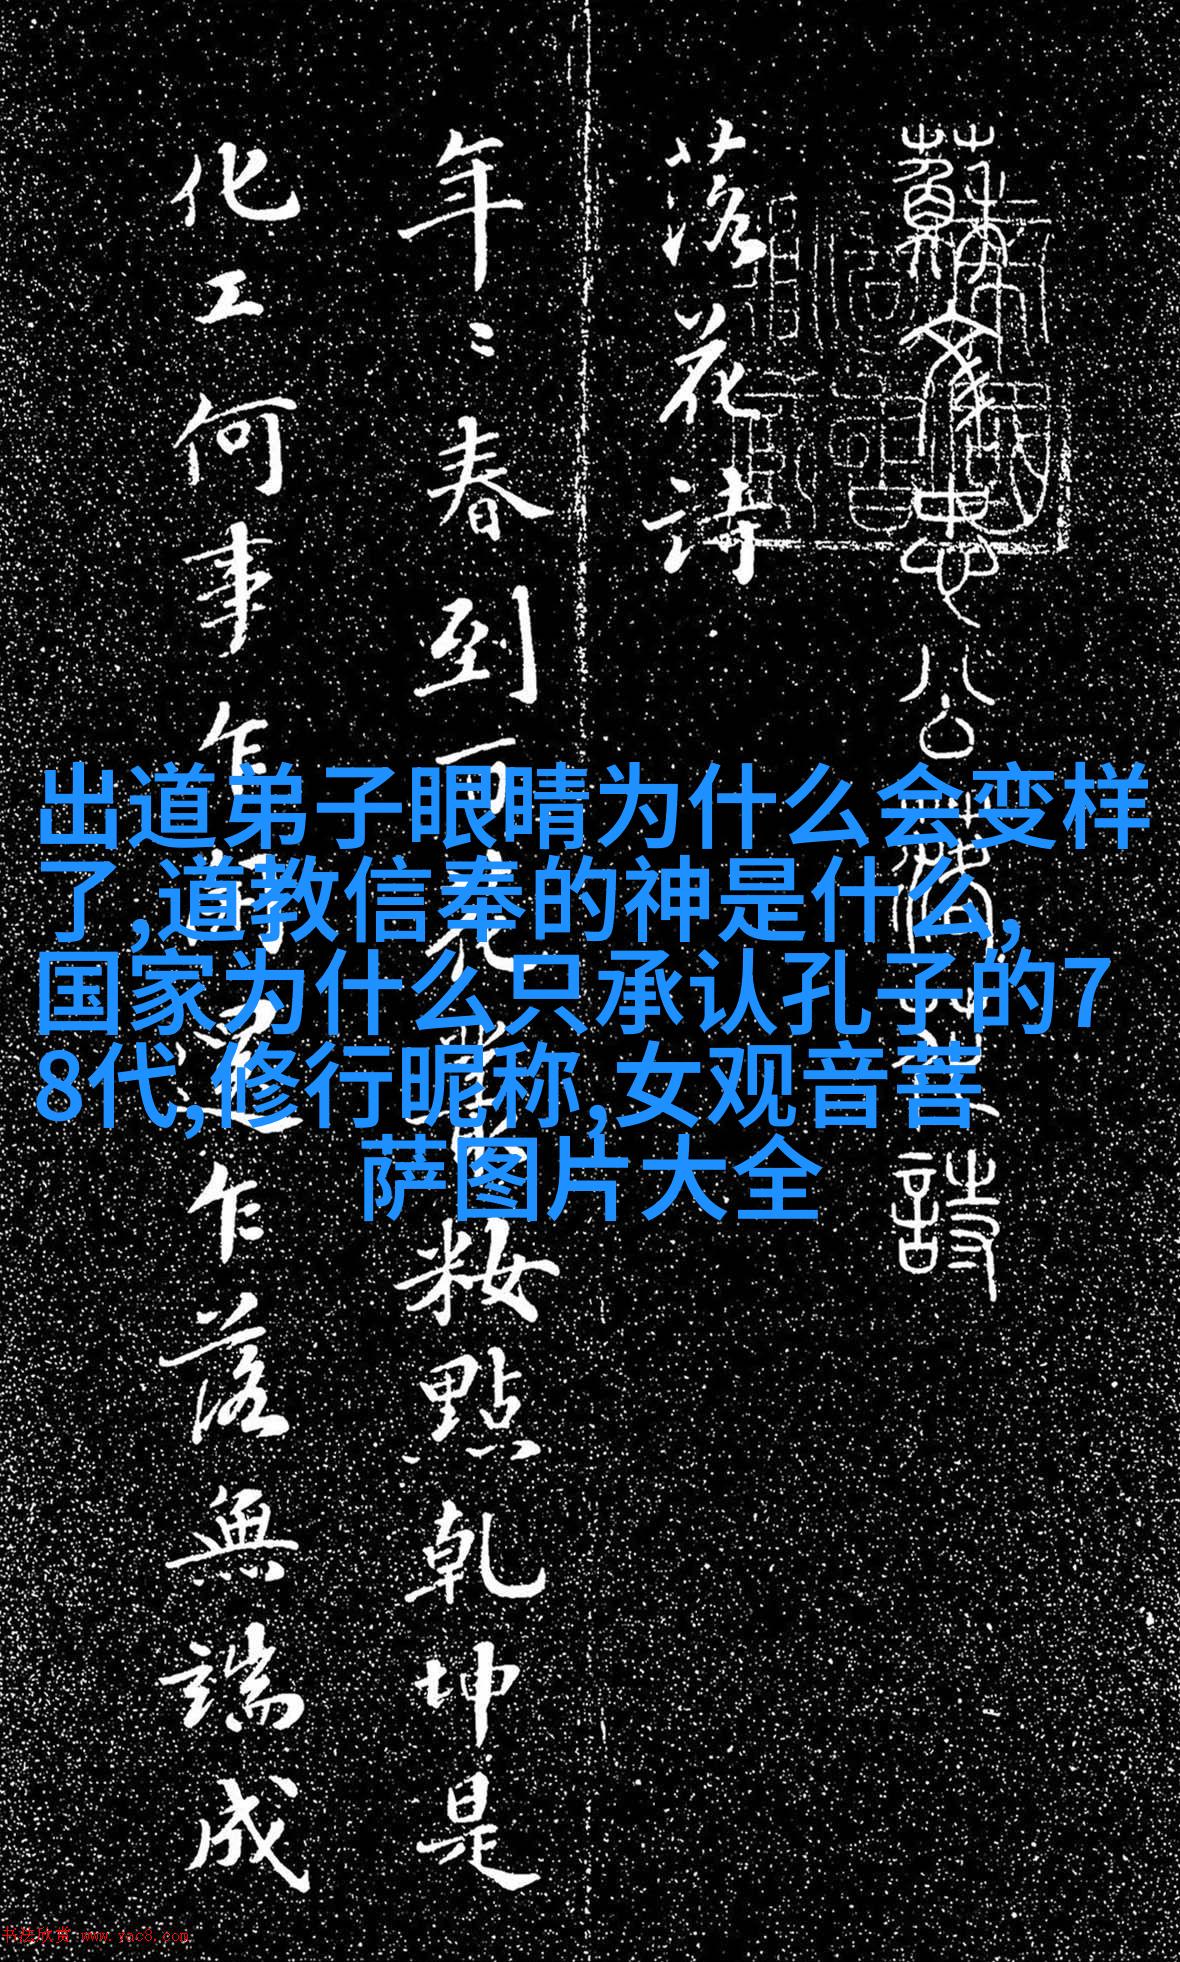 蘇文忠公落花詩
落花詩
年〻春到百花
粧點乾坤是
化工何事乍
乍落無端成
出道弟子眼睛为什么会变样
了,道教信奉的神是什么,
国家为什么只承认孔子的7
8代,修行昵称,女观音菩
萨图片大全
书法欣赏 www.yac8.com